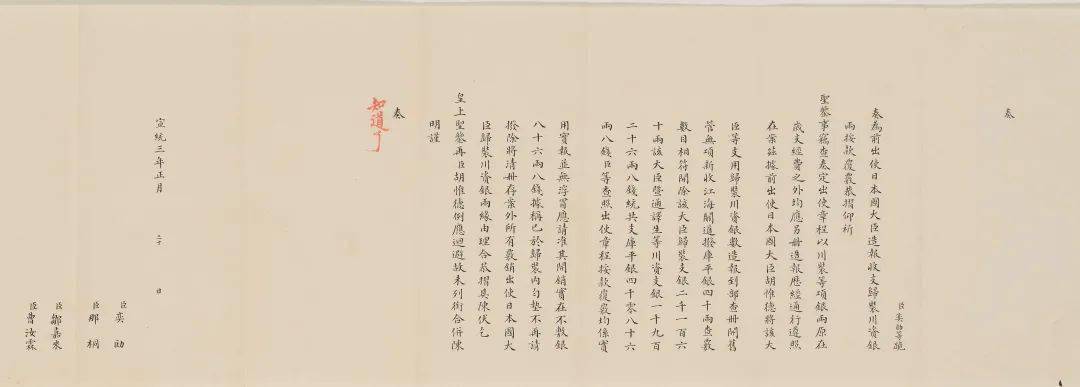 奏
臣奕劻等跪
奏為前出使日本國大臣造報收支歸裝川資銀
兩按款覆覈恭摺仰祈
聖鑒事竊查奏定出使章程以川裝等項銀兩原在
歲支經費之外均應另冊造報歷經通行遵照
在案茲據前出使日本國大臣胡惟德將該大
臣等支用歸裝川資銀數造報到部查冊開舊
管無項新收江海關道撥庫平銀四千兩查覈
數目相符開除該大臣歸裝支銀二千一百六
十兩該大臣暨通譯生等川資支銀一千九百
二十六兩八錢統共支庫平銀四千零八十六
兩八錢臣等查照出使章程按款覆覈均係實
用實報並無浮冒應請准其開銷實在不敷銀
八十六兩八錢據稱已於歸裝內勻墊不再請
撥除將清冊存案外所有覈銷出使日本國大
臣歸裝川資銀兩緣由理合恭摺具陳伏乞
皇上聖鑒再臣胡惟德例應迴避故未列銜合併陳
明謹
奏
知道了
宣統三年正月二十日
臣奕劻
臣那桐
臣鄒嘉來
臣曹汝霖